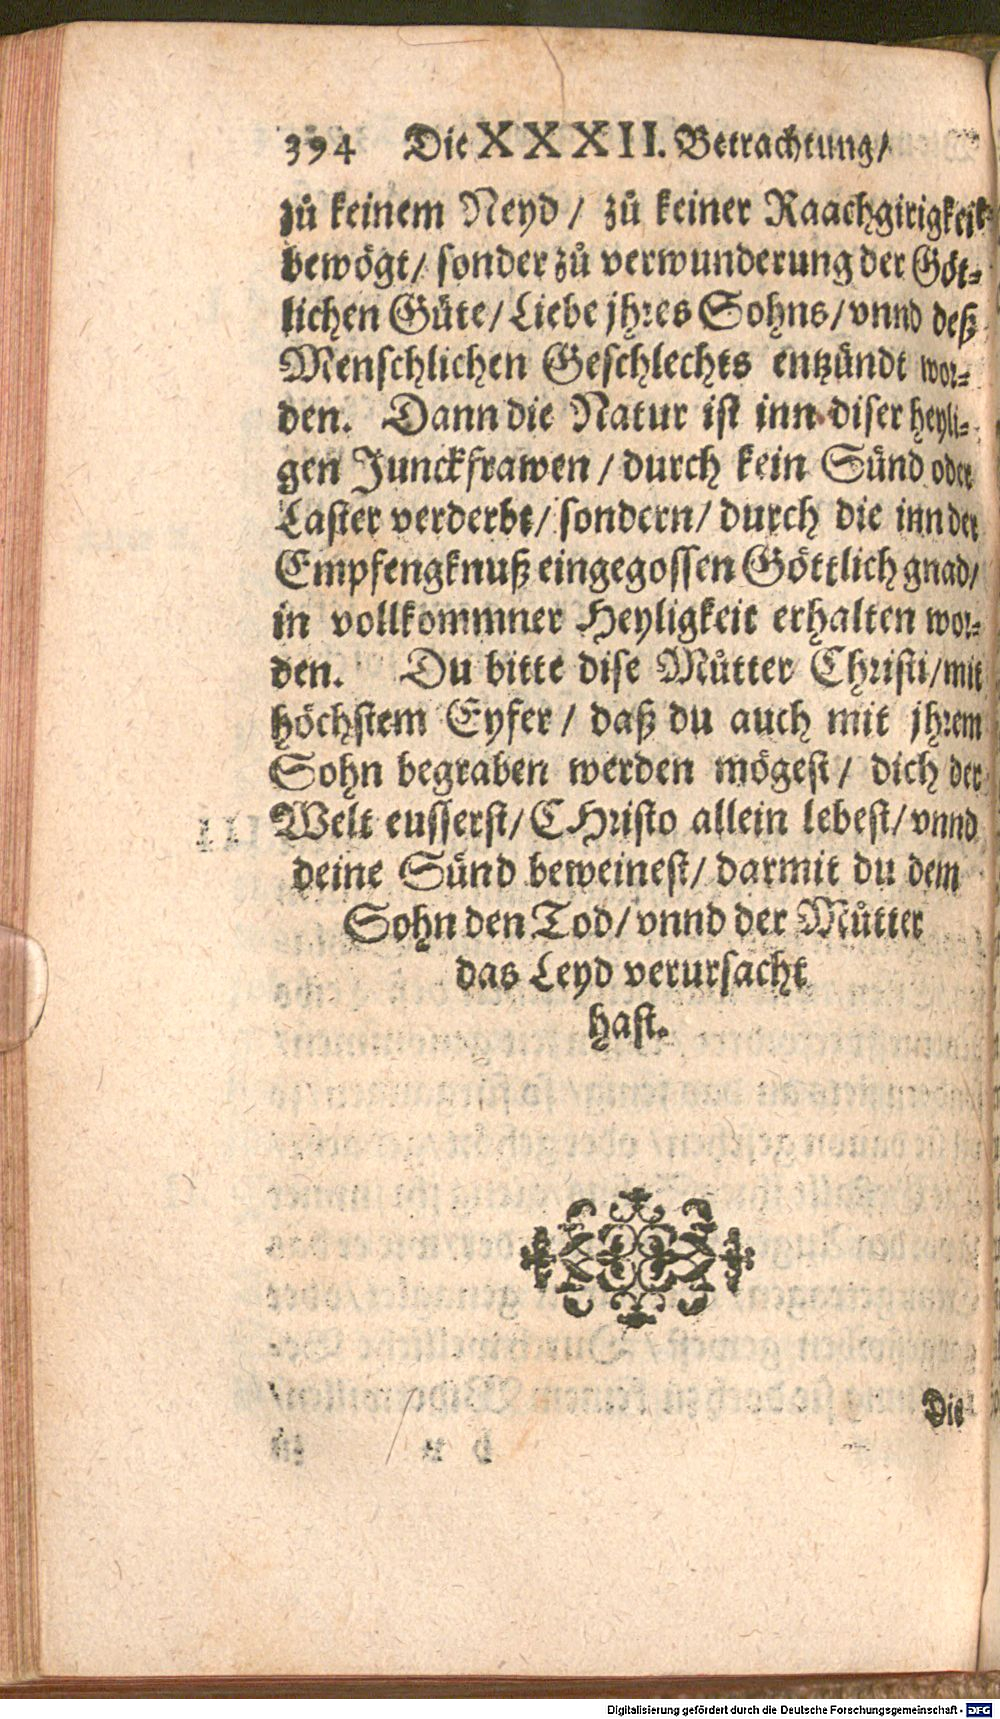 394 Die XXXII. Betrachtung/
zů keinem Neyd / zů keiner Raachgirigkeit
bewögt/ sonder zů verwunderung der Göt⸗
lichen Güte/ Liebe jhres Sohns/ vnnd deß
Menschlichen Geschlechts entzündt wor⸗
den. Dann die Natur ist inn diser heyli⸗
gen Junckfrawen / durch kein Sünd oder
Laster verderbt/ sondern/ durch die inn der
Empfengknuß eingegossen Göttlich gnad/
in vollkommner Heyligkeit erhalten wor⸗
den. Du bitte dise Můtter Christi/ mit
höchstem Eyfer / daß du auch mit jhrem
Sohn begraben werden mögest/ dich der
Welt eusserst/ CHristo allein lebest/ vnnd
deine Sünd beweinest/ darmit du dem
Sohn den Tod/ vnnd der Můtter
das Leyd verursacht
hast.
Die
Digitalisierung gefördert durch die Deutsche Forschungsgemeinschaft - DFG